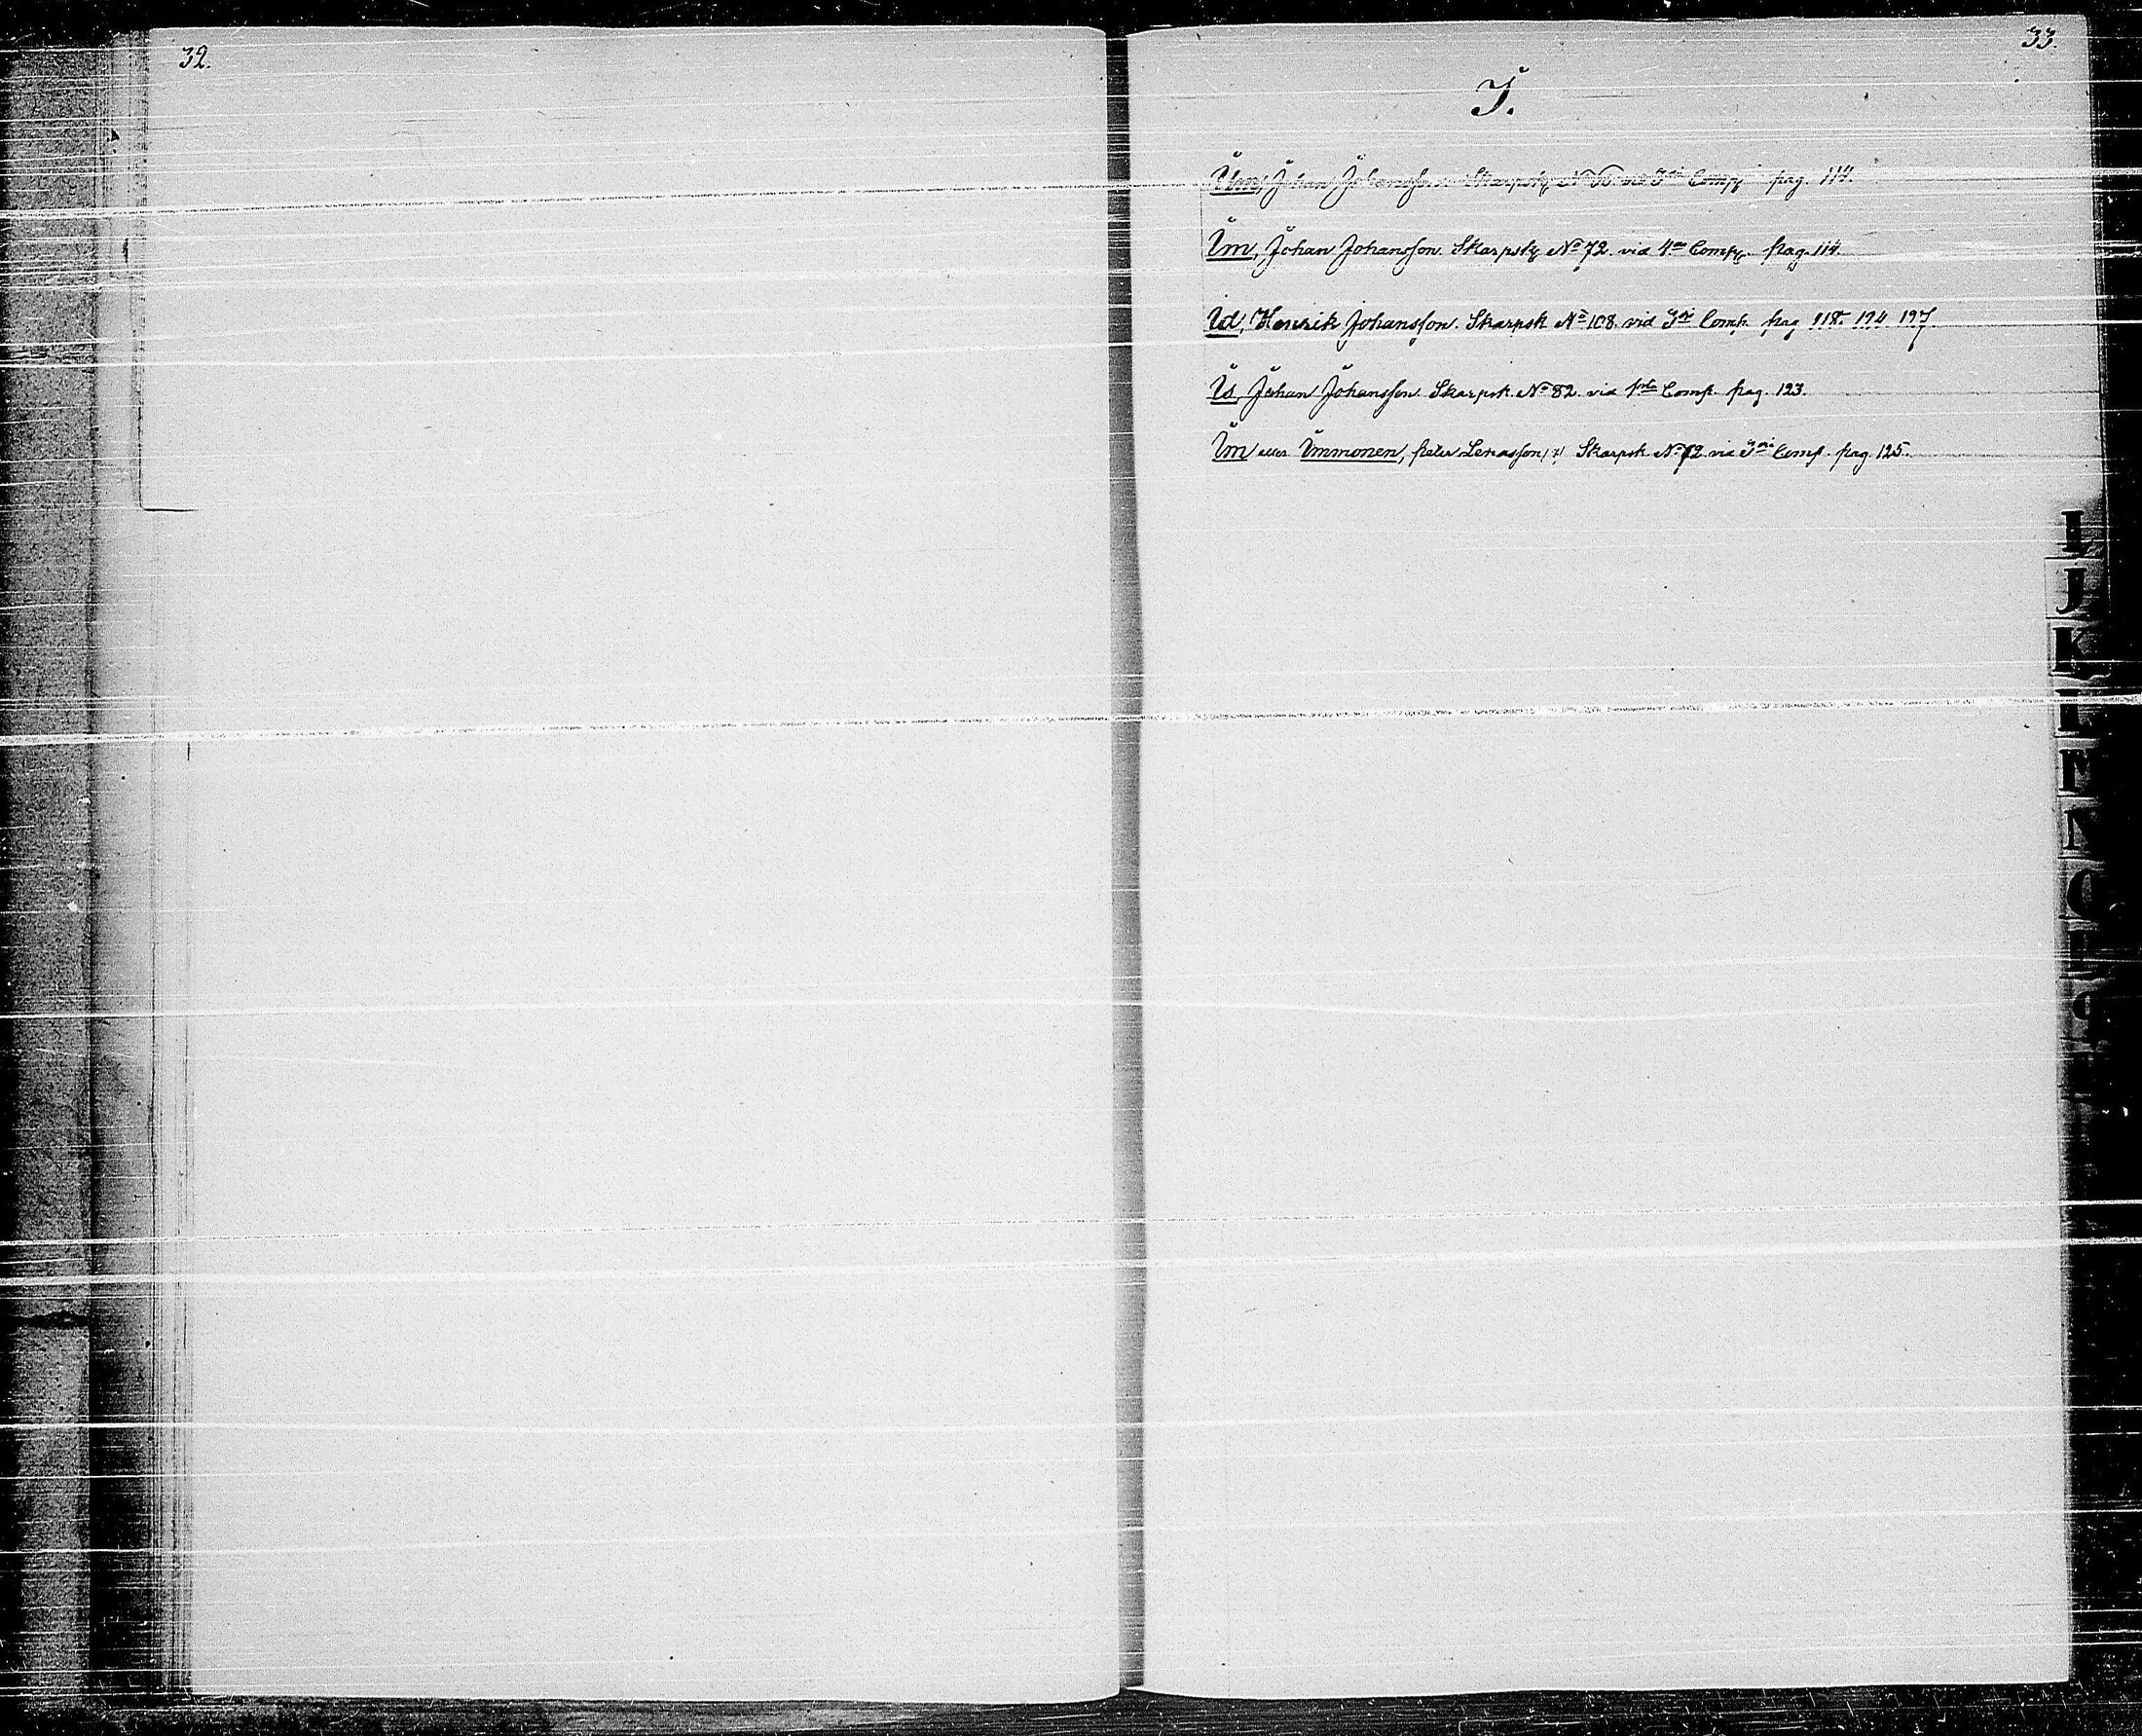 32.
33.
I.
Im, Johan Johansson. Skarpsk. No vid 3die Comp. pag. 114.
Im, Johan Johansson. Skarpsk. No 72. vid 4de Comp. pag. 114.
Id, Henrik Johansson. Skarpsk No 108. vid 3die Comp. pag 118. 194 197.
Is, Johan Johansson Skarpsk. No 82. vid 1sta Comp. pag. 123.
Im eller Immonen, Peter Skarpsk No 72 vid 3die Comp. pag. 125.
I
J
K
L
M
N
O